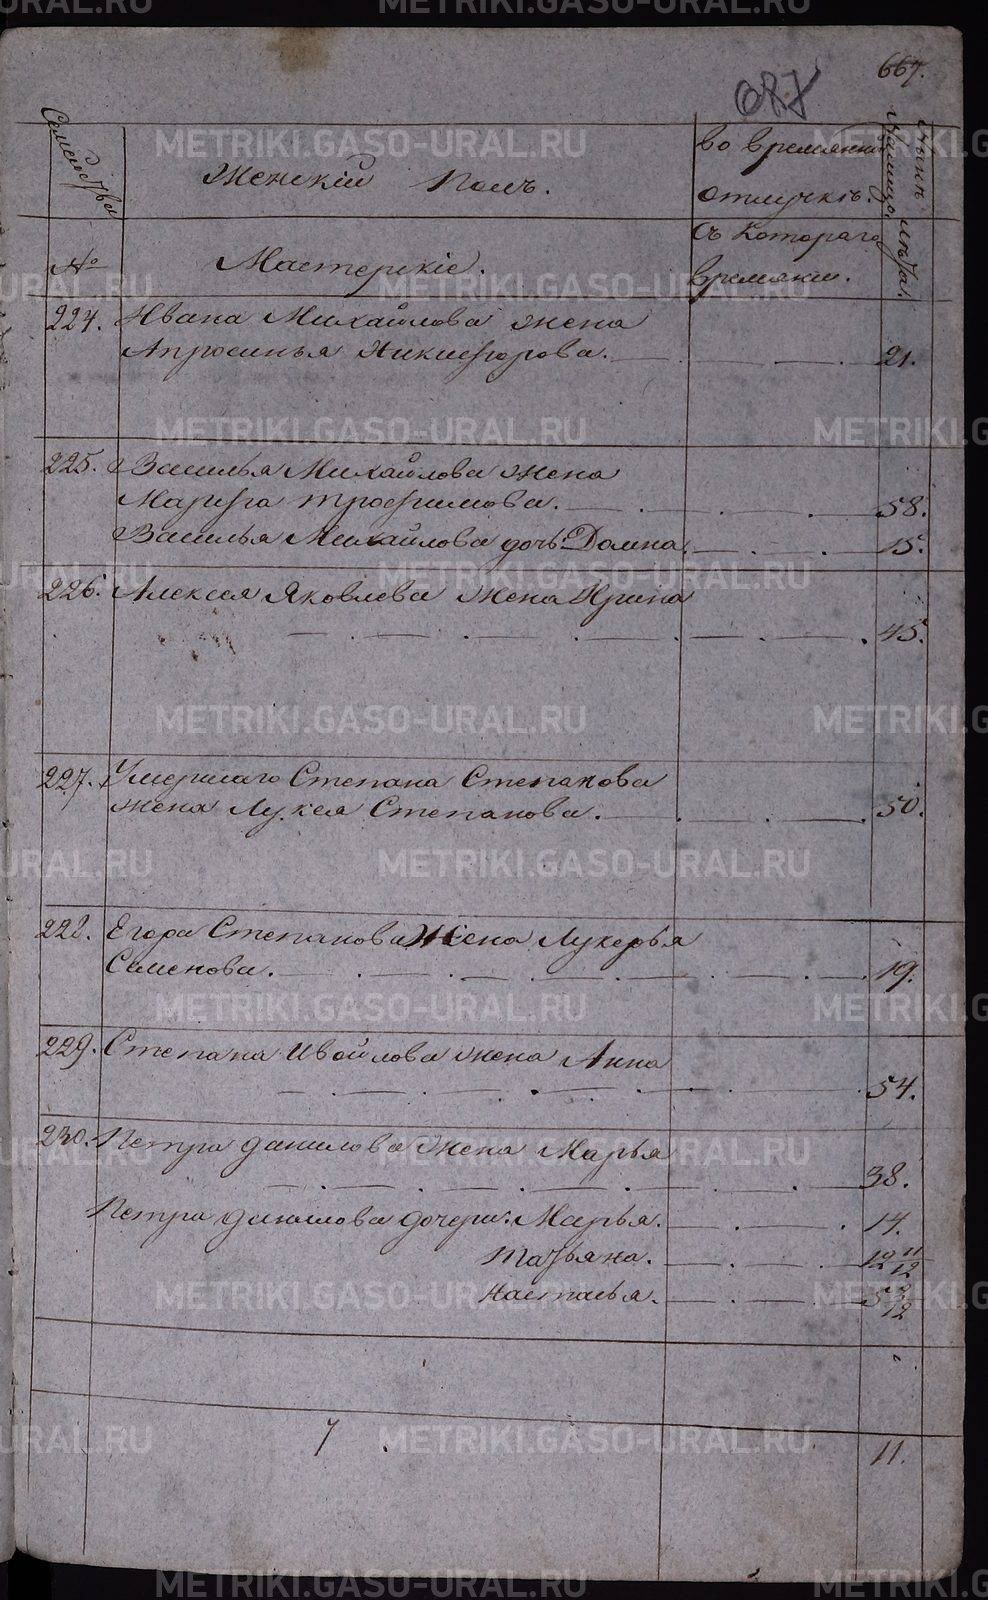 667.
687
Семейства
Женскій Полъ.
во времянной
отлучкѣ.
Нынѣ на лицо.
лѣта.
№
Мастерскіе.
Съ Котораго
времяни.
224. Ивана Михайлова жена
Апросинья Никифорова. 21.
225. Василья Михайлова жена
Марфа трофимова. 58.
Василья Михайлова дочь: Домна. 15.
226. Алексея Яковлева жена Ирина
45.
227. Умершаго Степана Степанова
жена Лукея Степанова. 50.
228. Егора Степанова Жена Лукерья
Семенова. 19.
229. Степана Ивойлова жена Анна
54.
230. Петра данилова жена Марья
38.
Петра данилова дочери: Марья. 14.
татьяна. 12 11/12
настасья. 5 2/12
7
11.
METRIKI.GASO-URAL.RU